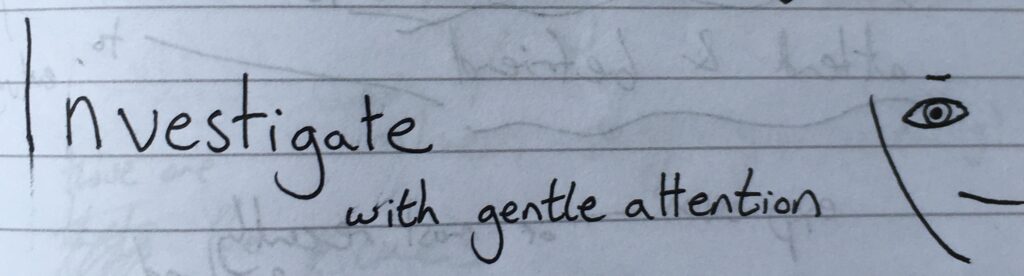 Investigate
with gentle attention